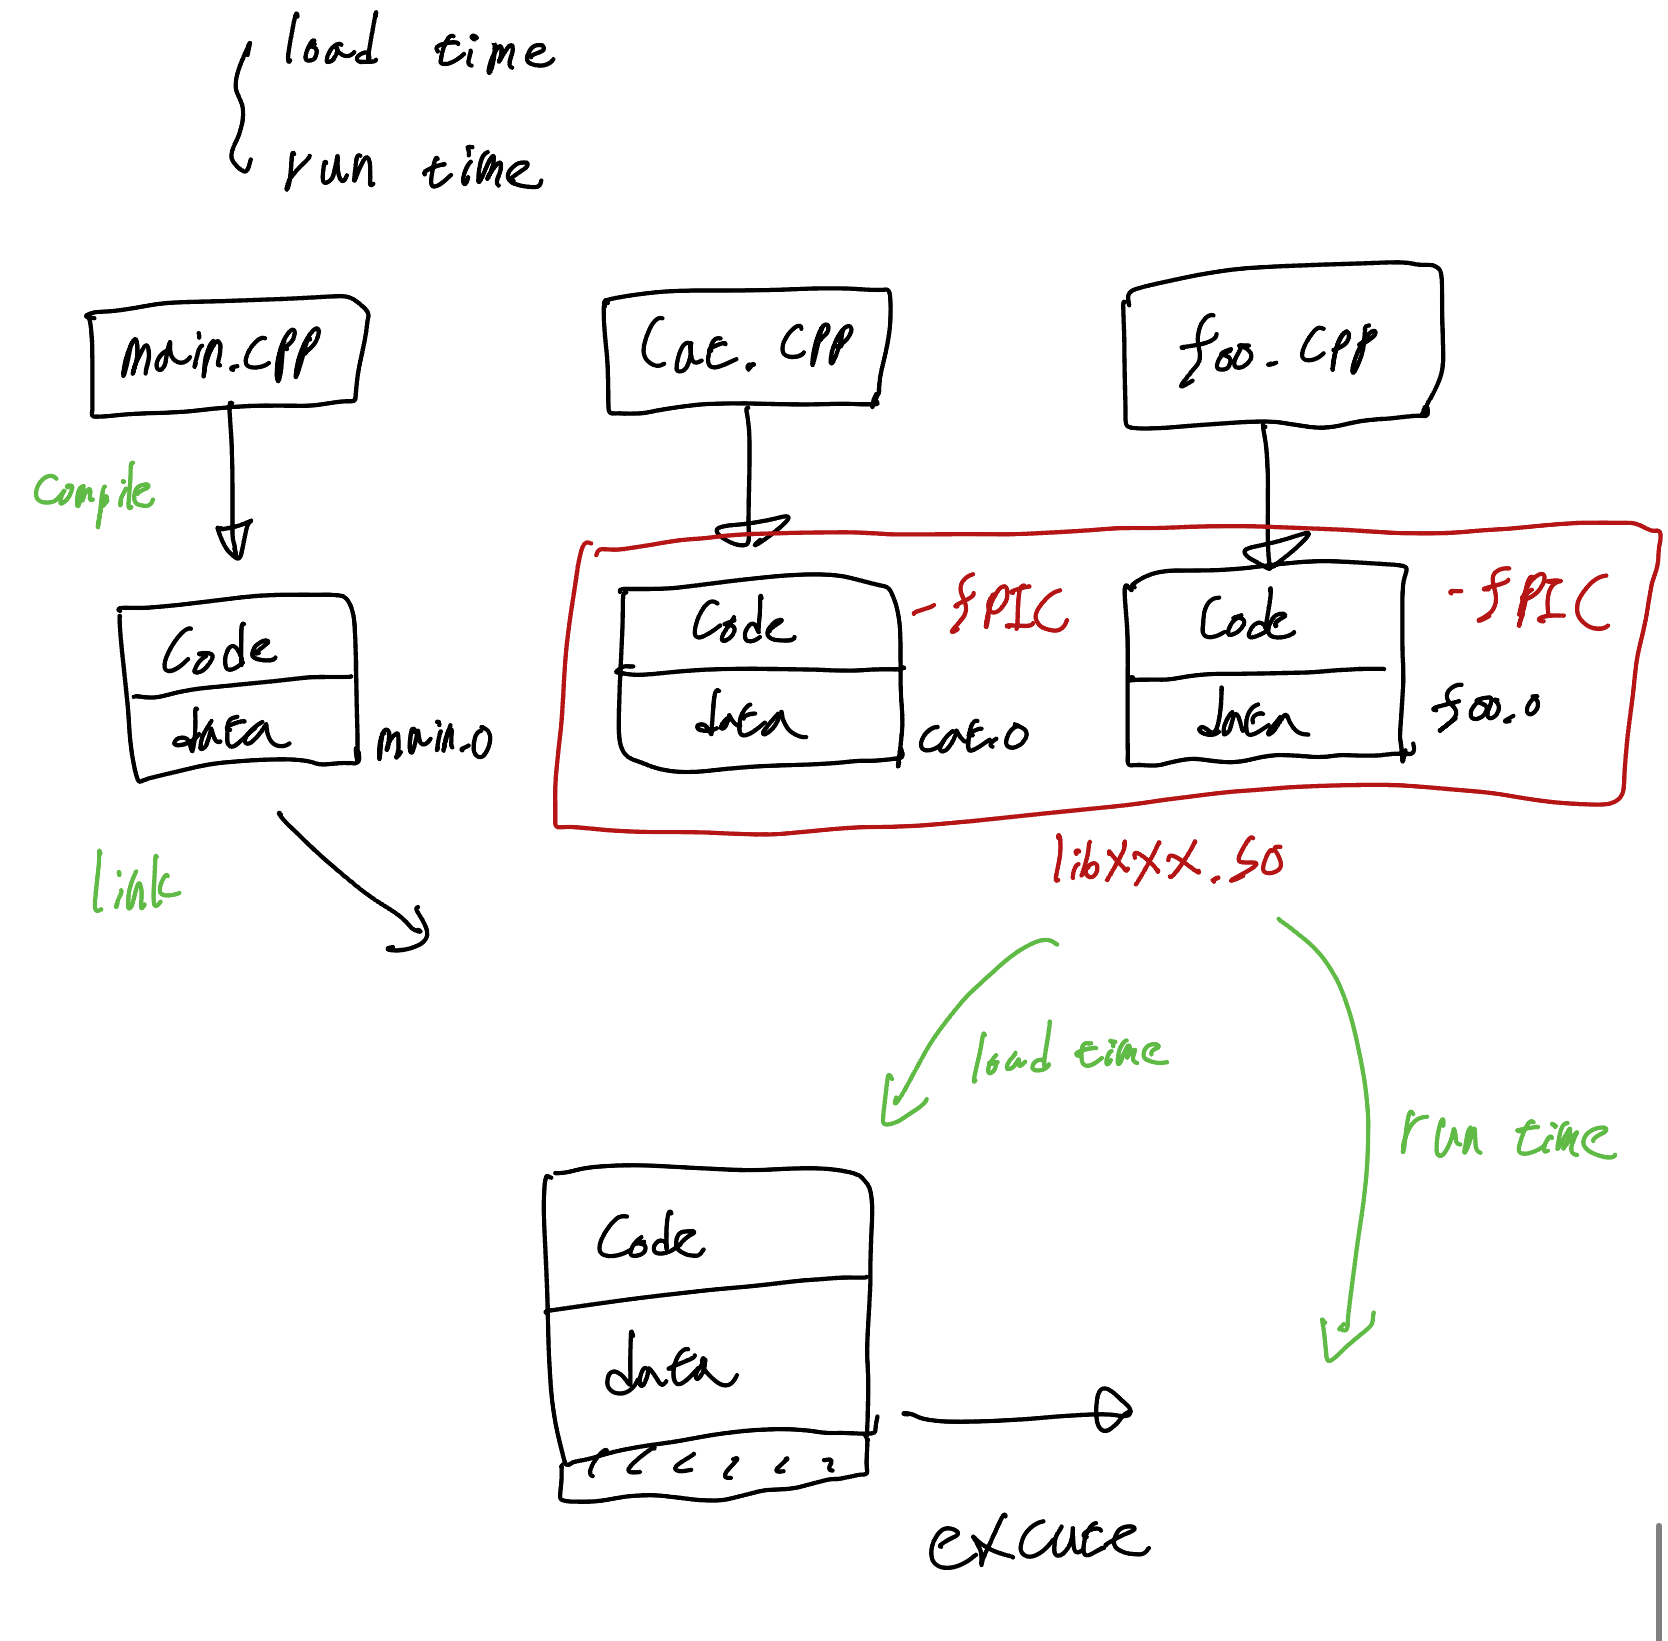 load time
run time
main.cpp
Cat.cpp
foo.cpp
compile
Code
data
main.o
Code
data
-fPIC
cat.o
Code
data
-fPIC
foo.o
libxxx.so
link
load time
run time
Code
data
excute